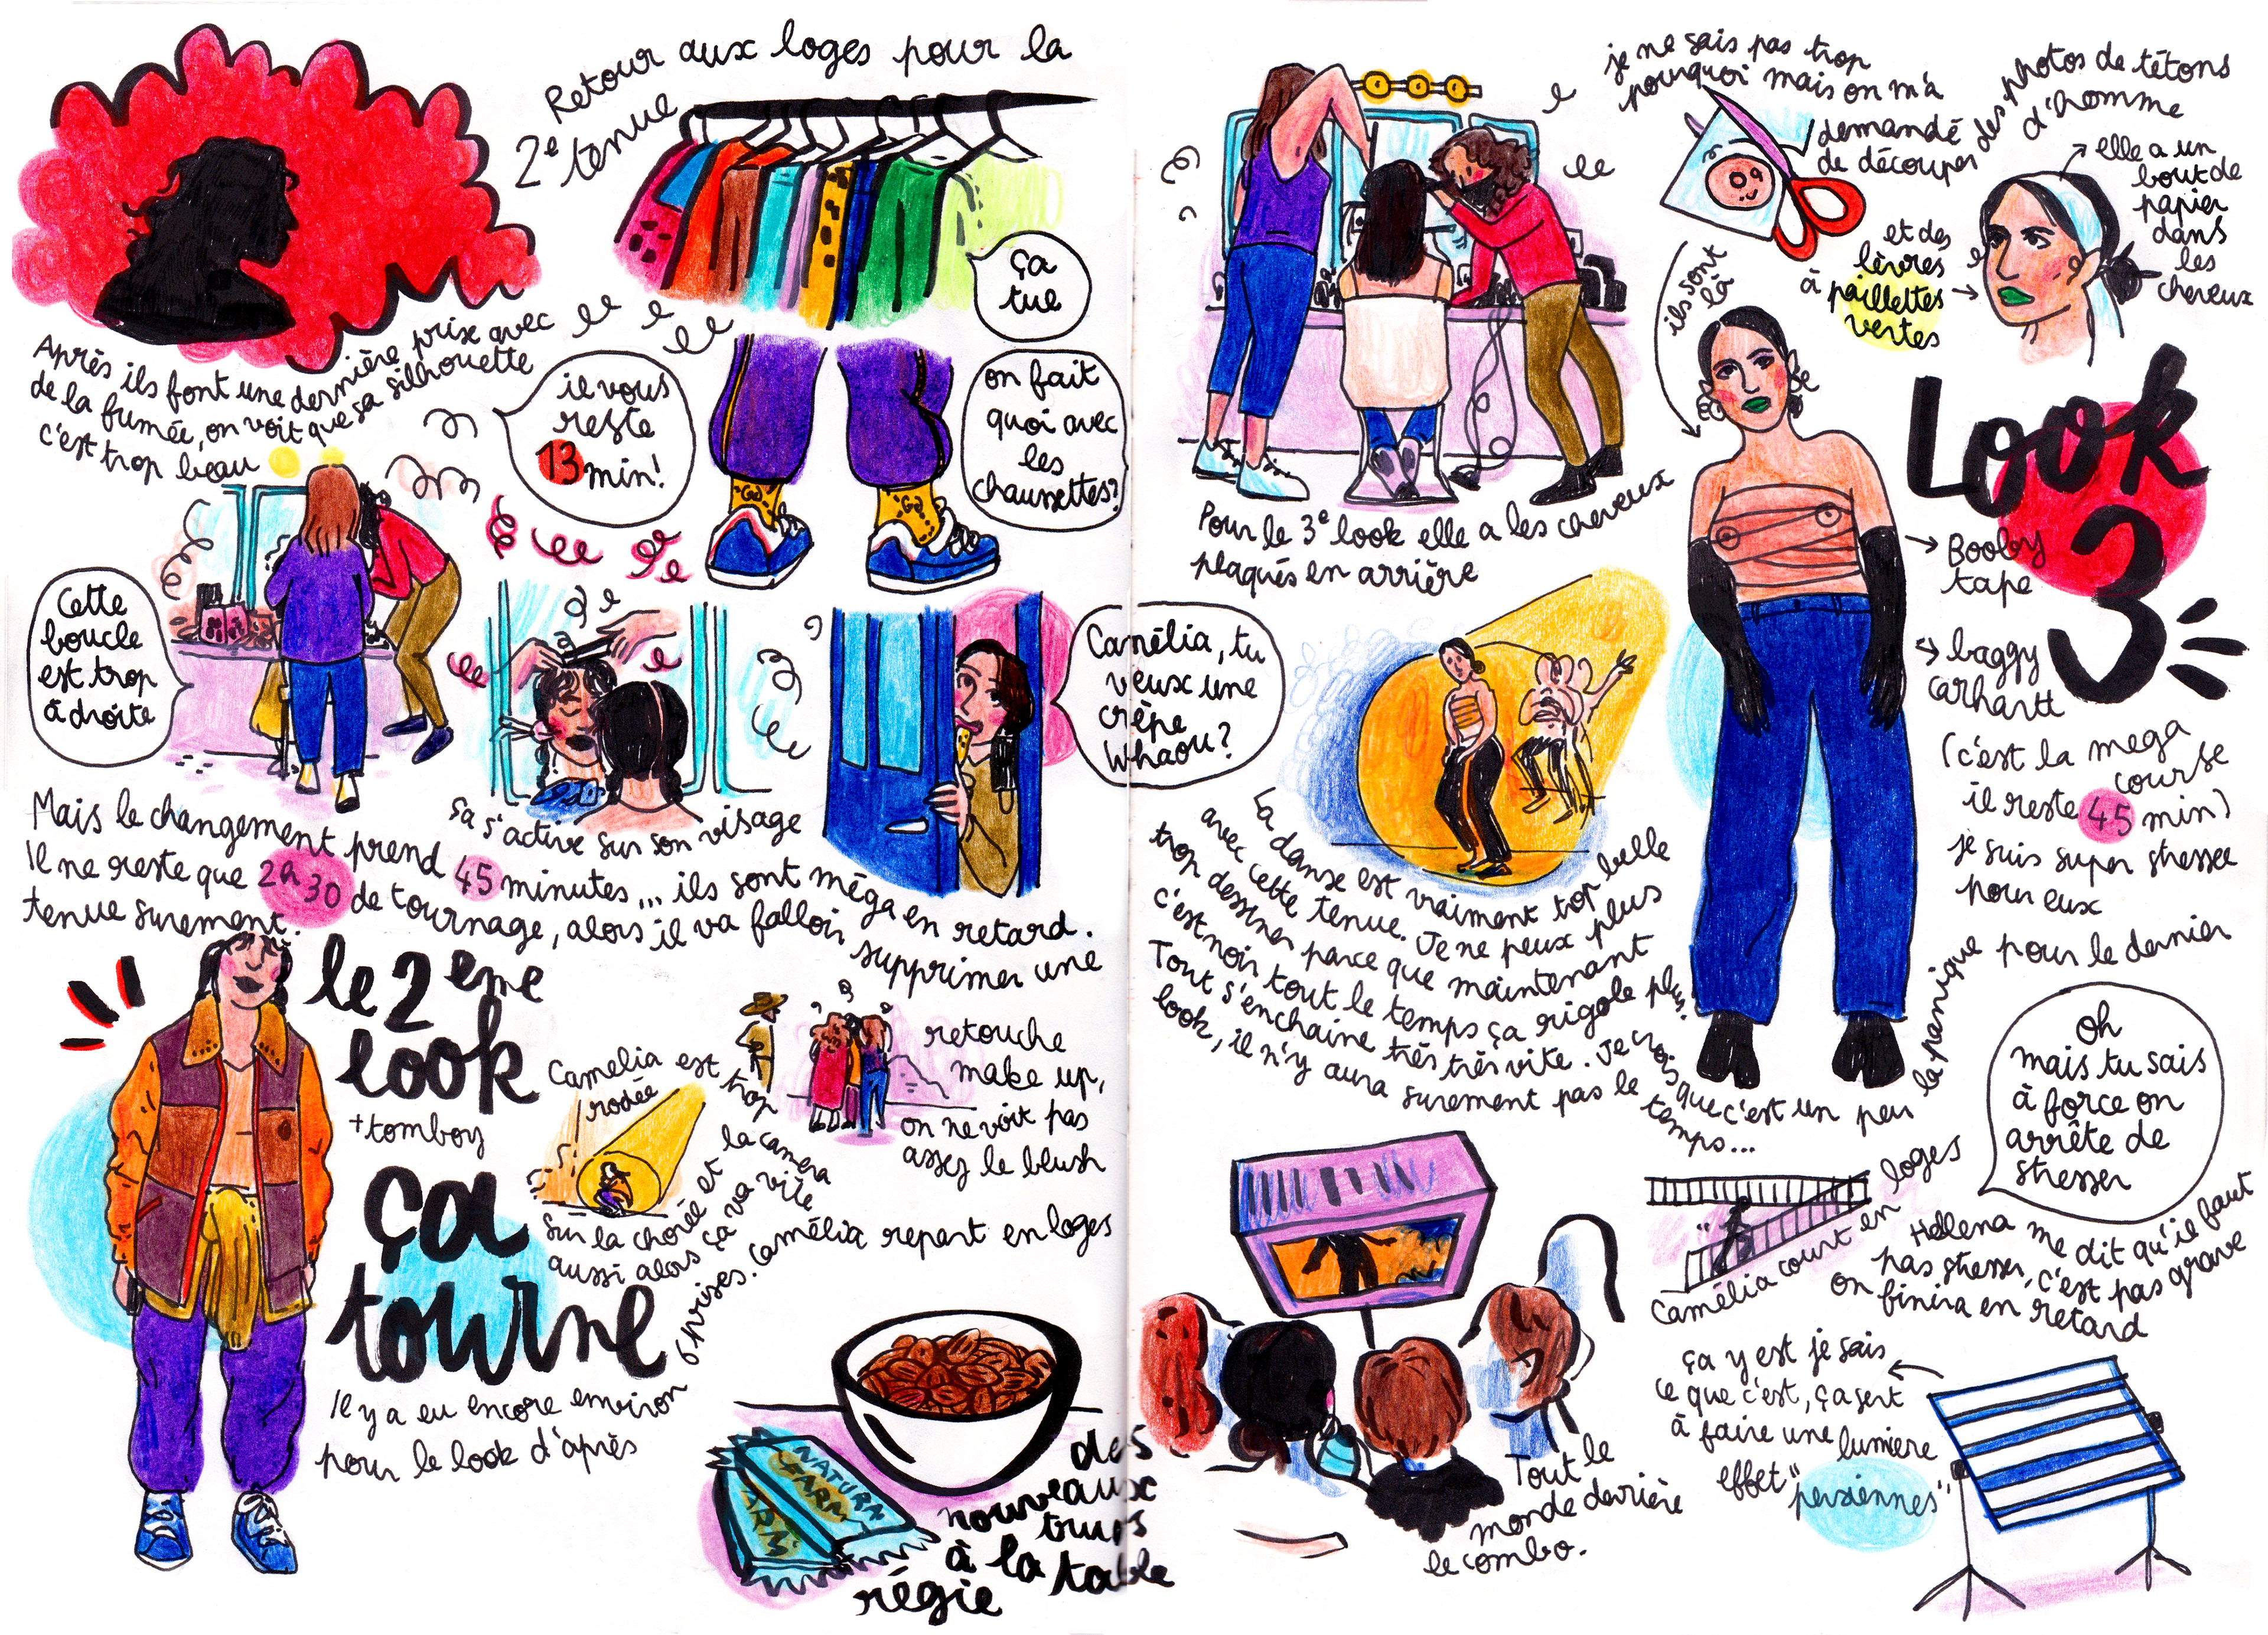 Après ils font une dernière prise avec
de la fumée, on voit que sa silhouette
c'est trop beau
Retour aux loges pour la
2e tenue
ça
tue
il vous
reste
13
min!
on fait
quoi avec
les
chaussettes?
Cette
boucle
est trop
à droite
ça s'active sur son visage
Camélia, tu
veux une
crêpe
Whaou?
Mais le changement prend 45 minutes... ils sont méga en retard.
Il ne reste que 2h30 de tournage, alors il va falloir supprimer une
tenue surement.
le 2ème
look
+ tomboy
ça
tourne
Camélia est trop
rodée
Sur la choré et la caméra
aussi alors ça va vite
retouche
make up,
on ne voit pas
assez le blush
Il y a eu encore environ 6 prises. Camélia repart en loges
pour le look d'après
NATURN
FARM
FARM
des
nouveaux
trucs
à la table
régie
Pour le 3e look elle a les cheveux
plaqués en arrière
je ne sais pas trop
pourquoi mais on m'a
demandé
de découper des photos de tétons
d'homme
ils sont
là
elle a un
bout de
papier
dans
les
cheveux
et des
lèvres
à paillettes
vertes
Look
3
Booby
tape
baggy
carhartt
(c'est la mega
course
il reste 45 min)
je suis super stressée
pour eux
La danse est vraiment trop belle
avec cette tenue. Je ne peux plus
trop dessiner parce que maintenant
c'est noir tout le temps ça rigole plus.
Tout s'enchaine très très vite. Je crois que c'est un peu la panique pour le dernier
look, il n'y aura surement pas le temps...
Oh
mais tu sais
à force on
arrête de
stresser
Camélia court en loges
Hélléna me dit qu'il faut
pas stresser, c'est pas grave
on finira en retard
Tout le
monde derrière
le combo.
ça y est je sais
ce que c'est, ça sert
à faire une lumière
effet "persiennes"